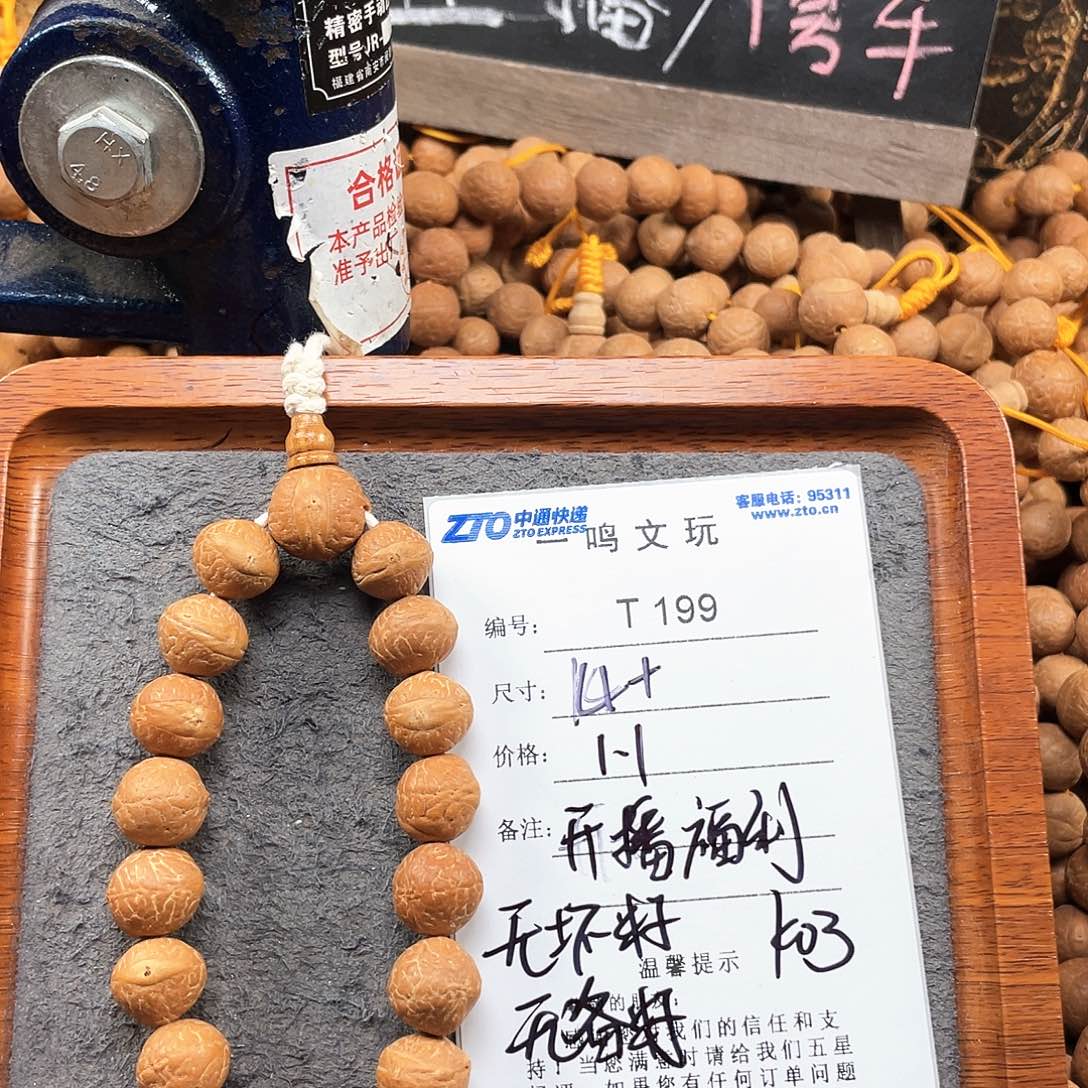 精密手动
型号JR-
福建省南安市
HX
4.8
合格
本产品检
准予出
播/停车
ZTO 中通快递
ZTO EXPRESS
客服电话：95311
www.zto.cn
一鸣文玩
编号： T 199
尺寸： 14+
价格： 1-1
备注： 开播福利
无坏籽 k03
温馨提示
无备籽
我们的信任和支
持！当您满意时请给我们五星
如果您有任何订单问题